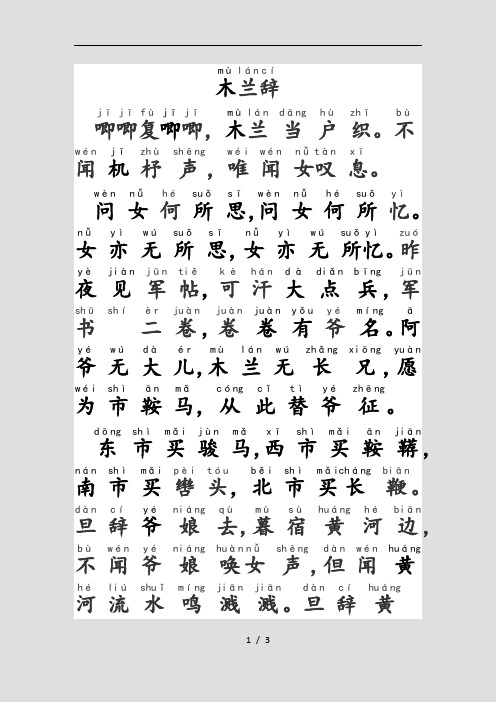 mù lán cí
木兰辞
jī jī fù jī jī mù lán dāng hù zhī bù
唧唧复唧唧，木兰当户织。不
wén jī zhù shēng wéi wén nǚ tàn xī
闻机杼声，唯闻女叹息。
wèn nǚ hé suǒ sī wèn nǚ hé suǒ yì
问女何所思，问女何所忆。
nǚ yì wú suǒ sī nǚ yì wú suǒ yì zuó
女亦无所思，女亦无所忆。昨
yè jiàn jūn tiě kè hán dà diǎn bīng jūn
夜见军帖，可汗大点兵，军
shū shí èr juàn juàn juàn yǒu yé míng ā
书 二卷，卷卷有爷名。阿
yé wú dà ér mù lán wú zhǎng xiōng yuàn
爷无大儿，木兰无长兄，愿
wéi shì ān mǎ cóng cǐ tì yé zhēng
为市鞍马，从此替爷征。
dōng shì mǎi jùn mǎ xī shì mǎi ān jiān
东市买骏马，西市买鞍鞯，
nán shì mǎi pèi tóu běi shì mǎi cháng biān
南市买辔头，北市买长鞭。
dàn cí yé niáng qù mù sù huáng hé biān
旦辞爷娘去，暮宿黄河边，
bù wén yé niáng huàn nǚ shēng dàn wén huáng
不闻爷娘唤女声，但闻黄
hé liú shuǐ míng jiān jiān dàn cí huáng
河流水鸣溅溅。旦辞黄
1 / 3